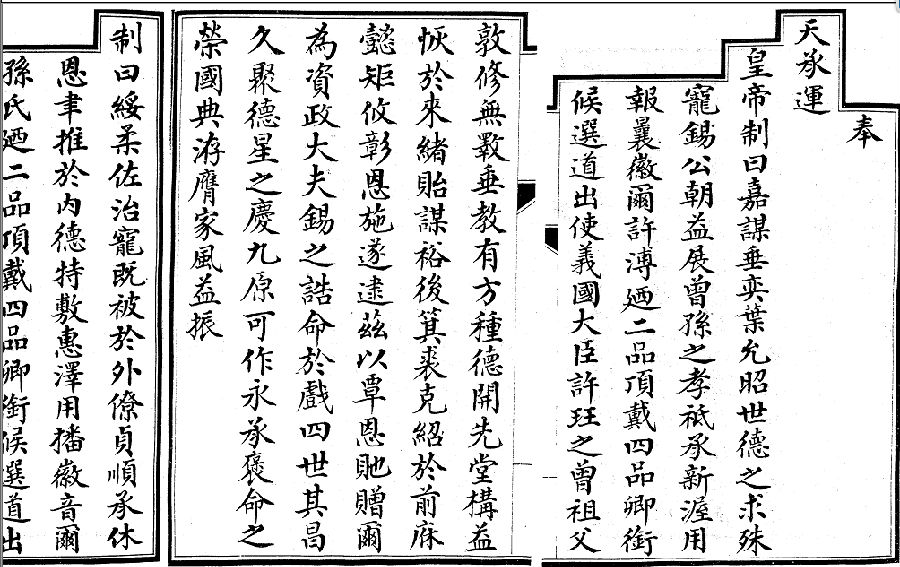 奉
天承運
皇帝制曰嘉謀垂奕葉允昭世德之求殊
寵錫公朝益展曾孫之孝祗承新渥用
報曩徽爾許溥廼二品頂戴四品卿銜
候選道出使義國大臣許珏之曾祖父
敦修無斁垂教有方種德開先堂構益
恢於來緒貽謀裕後箕裘克紹於前庥
懿矩攸彰恩施遂逮茲以覃恩貤贈爾
為資政大夫錫之誥命於戲四世其昌
久聚德星之慶九原可作永承褒命之
榮國典洊膺家風益振
制曰綏柔佐治寵既被於外僚貞順承休
恩聿推於內德特敷惠澤用播徽音爾
孫氏廼二品頂戴四品卿銜候選道出